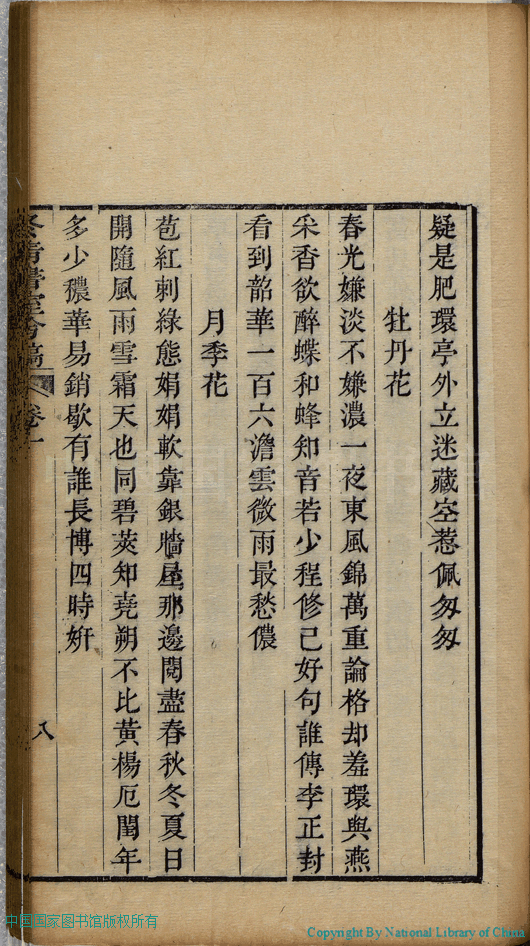 疑是肥環亭外立迷藏空惹佩匆匆
牡丹花
春光嫌淡不嫌濃一夜東風錦萬重論格却羞環與燕
采香欲醉蝶和蜂知音若少程修己好句誰傳李正封
看到韶華一百六澹雲微雨最愁儂
月季花
苞紅刺綠態娟娟軟靠銀牆屋那邊閱盡春秋冬夏日
開隨風雨雪霜天也同碧莢知堯朔不比黃楊厄閏年
多少穠華易銷歇有誰長博四時妍
卷一
八
中国国家图书馆版权所有
Copyright By National Library of China